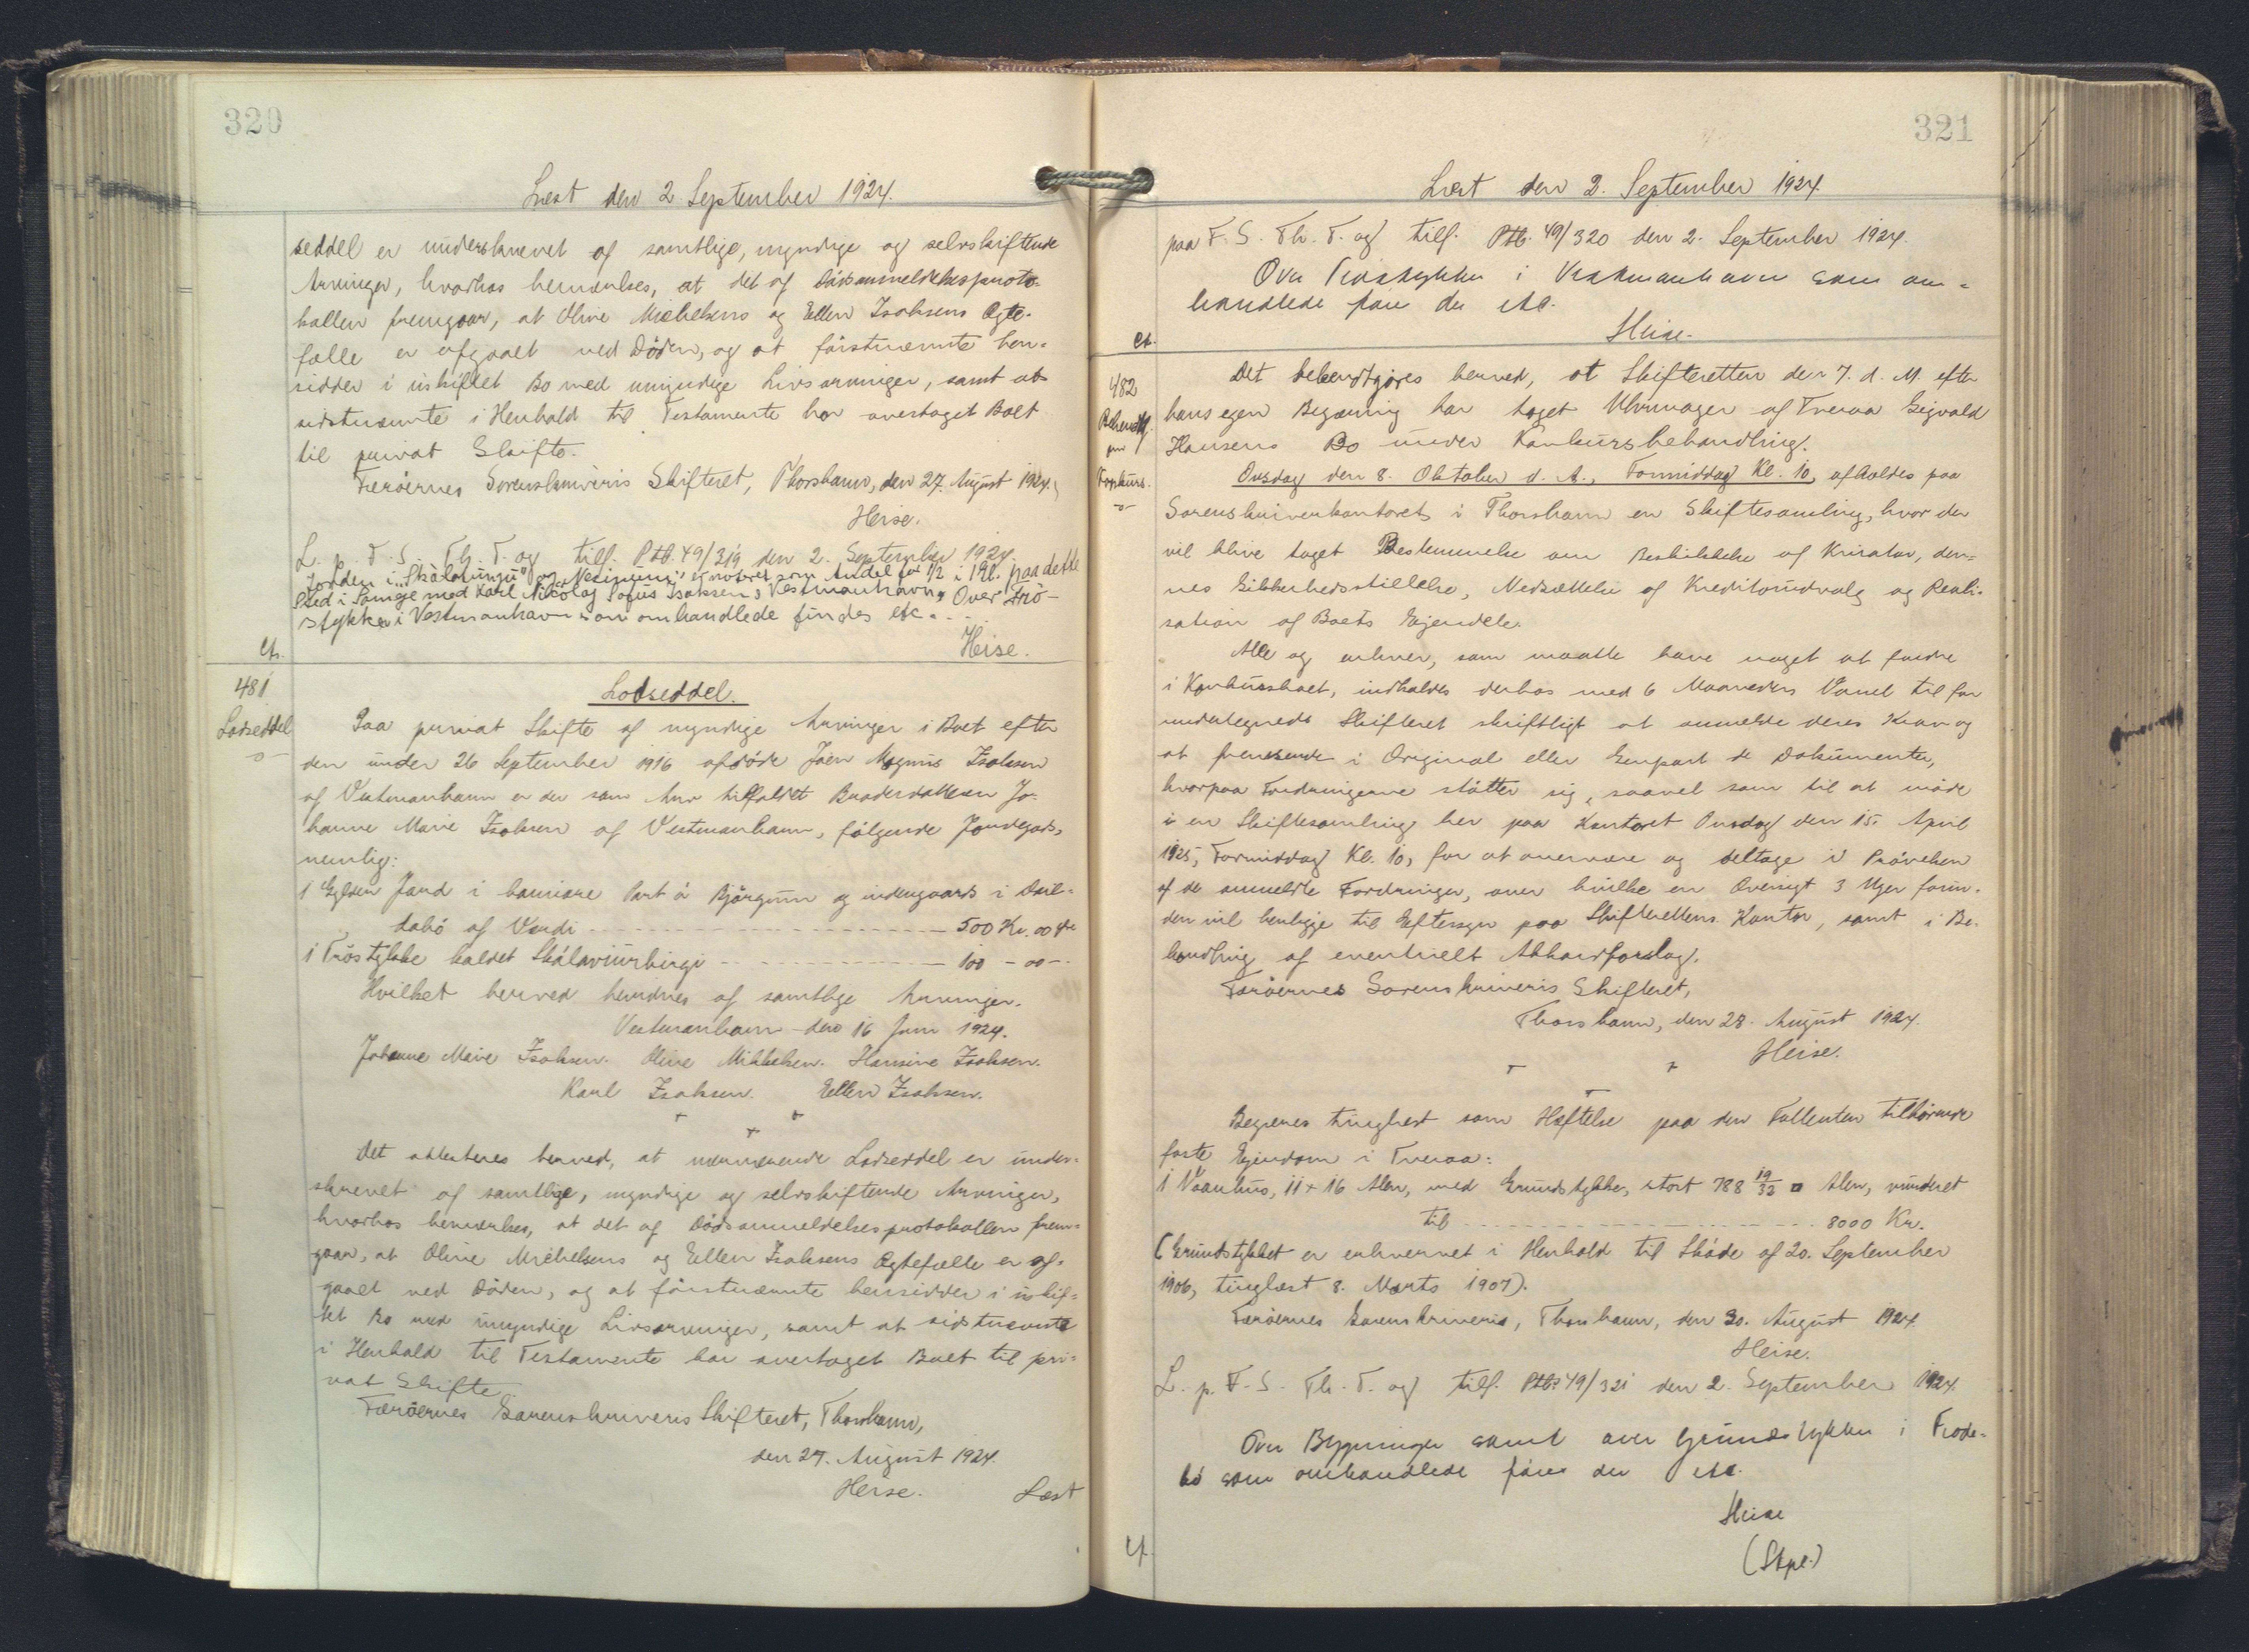 320
Læst den 2 September 1924.
seddel er underskrevet af samtlige, myndige og selvskiftende
Arvinger, hvorhos bemærkes, at det af Dødsanmeldelsesproto-
kollen fremgaar, at Oline Michelsens og Ellen Isaksens Ægte-
fælle er afgaaet ved Døden, og at førstnævnte hen-
sidder i uskiftet Bo med umyndige Livsarvinger, samt at
sidstnævnte i Henhold til Testamente har overtaget Boet
til privat Skifte.
Færøernes Sorenskriveris Skifteret, Thorshavn, den 27. August 1924.
Heise.
L. p. F. S. Th. T. og tilf. Ptb. 49/319 den 2. September 1924.
Jorden i "Skálavúrju" og er noteret som Andel for 1/2 i 1 Gl. paa dette
Sted i Sameje med Karl Nikolaj Sofus Isaksen, Vestmanhavn, Over Trö-
stykker i Vestmanhavn som omhandlede findes etc. . .
Heise.
Ct.
481
Lodseddel
Lodseddel.
Paa privat Skifte af myndige Arvinger i Boet efter
den under 26 September 1916 afdöde Joen Magnus Isaksen
af Vestmanhavn er der som Arv tilfaldet Broderdatteren Jo-
hanne Marie Isaksen af Vestmanhavn, følgende Jordegods,
nemlig:
1 Gylden Jord i hanisare Part á Bjørgum og indengaards i Dali-
dabö af Værdi - - - 500 Kr. 00 Øre
1 Tröstykke kaldet Skálaviurbirgi - - - 100 - 00 -
Hvilket herved kendnes af samtlige Arvinger.
Vestmanhavn den 16 Juni 1924.
Johanne Marie Isaksen. Oline Mikkelsen. Hansine Isaksen.
Karl Isaksen. Ellen Isaksen.
Det attesteres herved, at nærværende Lodseddel er under-
skrevet af samtlige, myndige og selvskiftende Arvinger,
hvorhos bemærkes, at det af Dødsanmeldelsesprotokollen frem-
gaar, at Oline Michelsens og Ellen Isaksens Ægtefælle er af-
gaaet ved Døden, og at førstnævnte hensidder i uskif-
tet Bo med umyndige Livsarvinger, samt at sidstnævnte
i Henhold til Testamente har overtaget Boet til pri-
vat Skifte.
Færøernes Sorenskriveris Skifteret, Thorshavn,
den 27. August 1924.
Heise.
Læst
321
Læst den 2. September 1924.
paa F. S. Th. T. og tilf. Ptb. 49/320 den 2. September 1924.
Over Tröstykker i Vestmanhavn som om-
handlede fare der etc.
Heise.
Ct.
482
Bekendtg.
om
Konkurs.
Det bekendtgøres herved, at Skifteretten den 7. d. M. efter
hans egen Begæring har taget Uhrmager af Tveraa Sigvald
Hansens Bo under Konkursbehandling.
Onsdag den 8. Oktober d. A., Formiddag Kl. 10, afholdes paa
Sorenskriverkontoret i Thorshavn en Skiftesamling, hvor der
vil blive taget Bestemmelse om Beskikkelse af Kurator, den-
nes Sikkerhedsstillelse, Nedsættelse af Kreditorudvalg og Reali-
sation af Boets Ejendele.
Alle og enhver, som maatte have noget at fordre
i Konkursboet, indkaldes derhos med 6 Maaneders Varsel til for
undertegnede Skifteret skriftligt at anmelde deres Krav og
at fremsende i Original eller Genpart de Dokumenter,
hvorpaa Fordringerne støtter sig, saavel som til at møde
i en Skiftesamling her paa Kontoret Onsdag den 15. April
1925, Formiddag Kl. 10, for at overvære og deltage i Prøvelsen
af de anmeldte Fordringer, over hvilke en Oversigt 3 Uger forin-
den vil henligge til Eftersyn paa Skifterettens Kontor, samt i Be-
handling af eventuelt Akkordforslag.
Færøernes Sorenskriveris Skifteret,
Thorshavn, den 28. August 1924.
Heise.
Begæres tinglyst som Hæftelse paa den Fallenten tilhørende
faste Ejendom i Tveraa:
1 Vaanhus, 11 x 16 Alen, med Grundstykke, stort 788 19/32 □ Alen, vurderet
til - - - 8000 Kr.
(Grundstykket er erhvervet i Henhold til Skøde af 20. September
1906, tinglæst 8. Marts 1907).
Færøernes Sorenskriveri, Thorshavn, den 30. August 1924.
Heise.
L. p. F. S. Th. T. og tilf. Ptb. 49/321 den 2. September 1924.
Over Bygninger samt over Grundstykker i Frode-
bö som omhandlede fare der etc.
Heise
(Stpl.)
Ct.